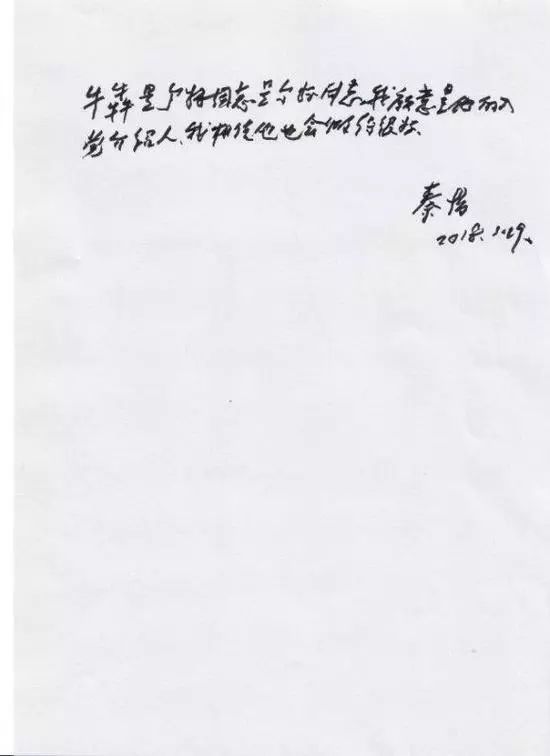 牛犇是个好同志是个好同志,我愿意是他的入
党介绍人、我相信他也会做的很好.
秦怡
2018.1.29.